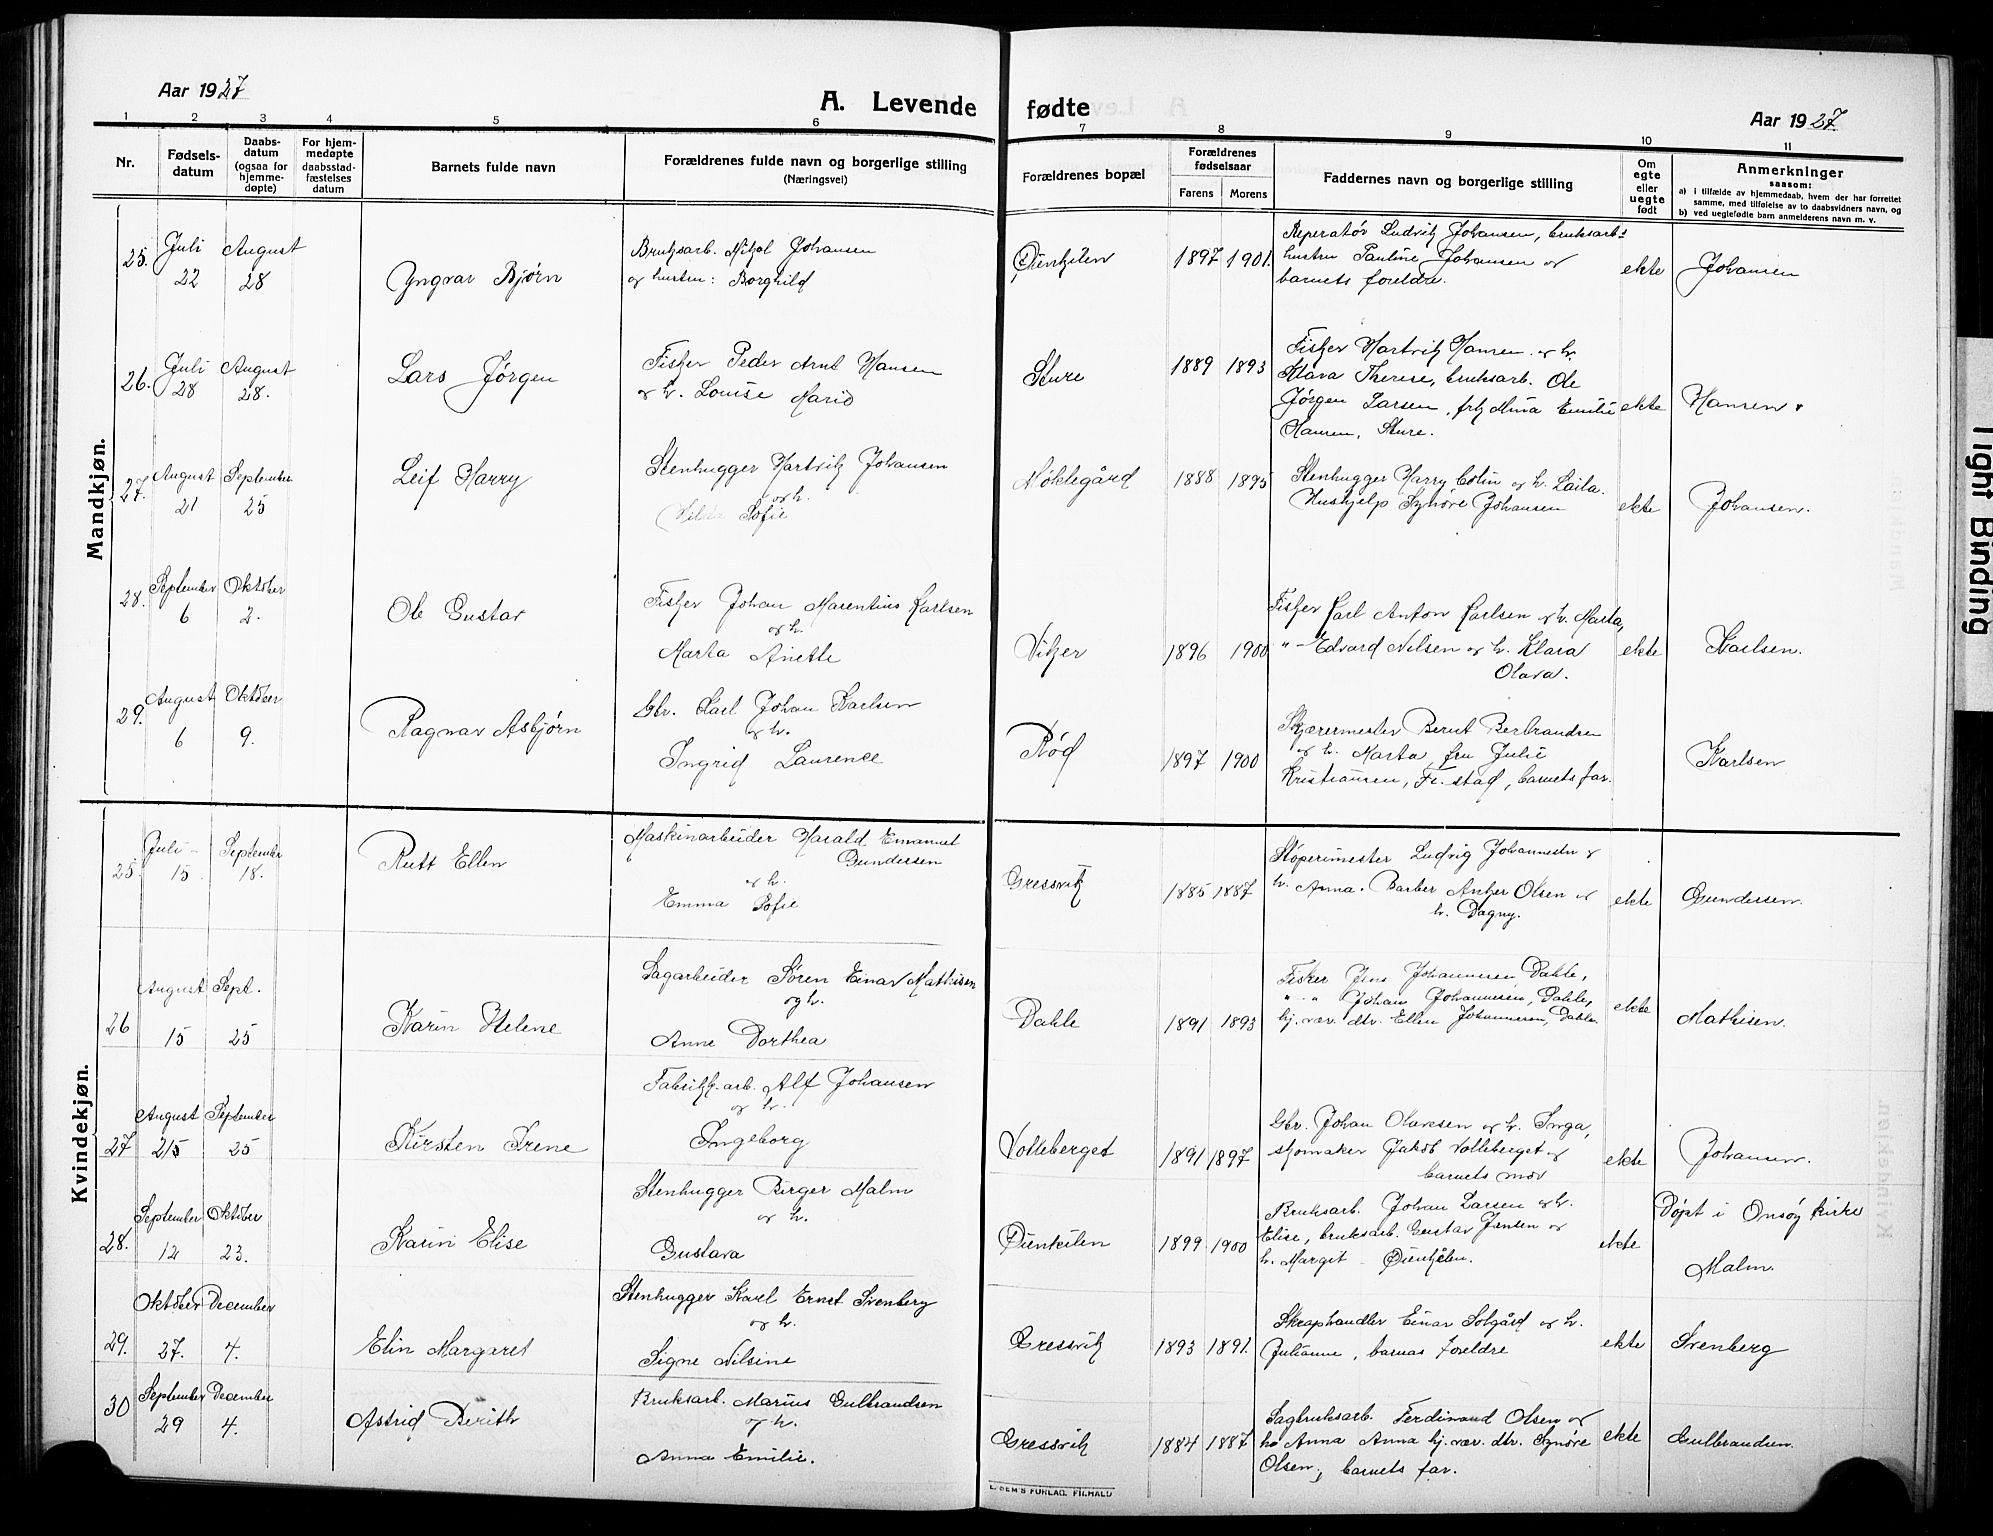 Aar 1927
A. Levende fødte
Aar 1927
1 2 3 4 5 6 7 8 9 10 11
Nr.
Fødsels-
datum
Daabs-
datum
(ogsaa for
hjemme-
døpte)
For hjem-
medøpte
daabsstad-
fæstelses
datum
Barnets fulde navn
Forældrenes fulde navn og borgerlige stilling
(Næringsvei)
Forældrenes bopæl
Forældrenes
fødselsaar
Farens Morens
Faddernes navn og borgerlige stilling
Om
egte
eller
uegte
født
Anmerkninger
saasom:
a) i tilfælde av hjemmedaab, hvem der har forrettet
samme, med tilføielse av to daabsvidners navn, og
b) ved uegtefødte barn anmelderens navn m. v.
Mandkjøn.
25. Juli 22 August 28
Yngvar Bjørn
Bruksarb. Nikol Johansen
og hustru: Borghild
Øienkilen 1897 1901
Reperatør Ludvik Johansen, bruksarb.
hustru Pauline Johansen og
barnets foreldre.
ekte Johansen
26. Juli 28 August 28.
Lars Jørgen
Fisker Peder Arnt Hansen
og h. Louise Marie
Sture 1889 1893
Fisker Hartvik Hansen og h.
Klara Therese, bruksarb. Ole
Jørgen Larsen, frk Mina Emilie
Hansen, Sture.
ekte Hansen
27. August 21 September 25
Leif Harry
Stenhugger Hartvik Johansen
og h.
Hilda Sofie
Møklegård 1888 1895
Stenhugger Harry Colin og h. Laila.
Hushjelp Synøve Johansen
ekte Johansen.
28. September 6 Oktober 2.
Ole Gustav
Fisker Johan Marentius Karlsen
og h.
Marta Anette
Viker 1896 1900
Fisker Karl Anton Karlsen og h. Marta,
" - Edvard Nilsen og h. Klara
Olava.
ekte Karlsen.
29. August 6 Oktober 9.
Ragnar Asbjørn
Gbr. Karl Johan Karlsen
og h.
Ingrid Laurence
Rød 1897 1900
Skjærermester Bernt Berbrandsen
og h. Marta, fru Julie
Kristiansen, Fr.stad, barnets far.
Karlsen
Kvindekjøn.
25. Juli 15 September 18.
Rutt Ellen
Maskinarbeider Harald Emanuel
Gundersen
og h.
Emma Sofie
Gressvik 1885 1887
Støperimester Ludvig Johannesen og
h. Anna. Barber Anker Olsen og
h. Dagny.
ekte Gundersen.
26 August 15 Sept. 25
Karin Helene
Sagarbeider Søren Einar Mathisen
og h.
Anne Dorthea
Dahle 1891 1893
Fisker Jens Johannesen, Dahle,
" - " Johan Johannesen, Dahle,
hj. vær. dtr. Ellen Johannesen, Dahle
ekte Mathisen.
27 August 25 September 25
Kirsten Irene
Fabrikk.arb. Alf Johansen
og h.
Ingeborg
Volleberget 1891 1897
Gbr. Johan Olavesen og h. Inga,
skomaker Jakob Volleberget og
barnets mor
ekte Johansen.
28. September 12 Oktober 23.
Karin Elise
Stenhugger Birger Malm
og h.
Gustava
Øienkilen 1899 1900
Bruksarb. Johan Larsen og h.
Elise, bruksarb. Gustav Jensen og
h. Margit - Øienkilen.
ekte
Døpt i Onsøy kirke
Malm.
29. Oktober 27. December 4.
Elin Margaret
Stenhugger Karl Ernst Svenberg
og h.
Signe Nilsine
Gressvik 1893 1891.
Skraphandler Einar Solgård og h.
Julianne, barnas foreldre
ekte Svenberg
30 September 29 December 4.
Astrid Berith
Bruksarb. Marius Gulbrandsen
og h.
Anna Emilie.
Gressvik 1884 1887
Sagbruksarb. Ferdinand Olsen og
h. Anna Anna hj. vær. dtr. Synøve
Olsen, barnets far.
ekte Gulbrandsen.
Tight Binding